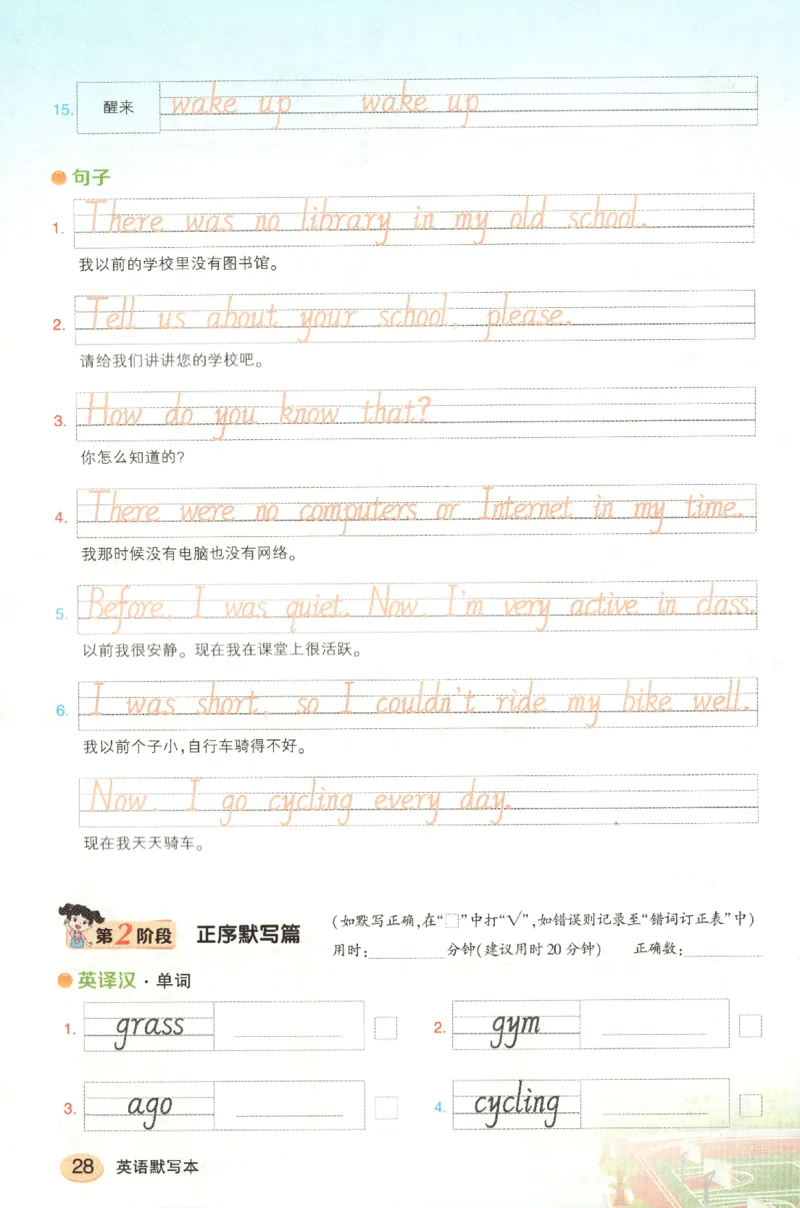 15. 醒来 wake up wake up
句子
1. There was no library in my old school.
我以前的学校里没有图书馆。
2. Tell us about your school, please.
请给我们讲讲您的学校吧。
3. How do you know that?
你怎么知道的?
4. There were no computers or Internet in my time.
我那时候没有电脑也没有网络。
5. Before, I was quiet. Now, I'm very active in class.
以前我很安静。现在我在课堂上很活跃。
6. I was short, so I couldn't ride my bike well.
我以前个子小,自行车骑得不好。
Now, I go cycling every day.
现在我天天骑车。
第2阶段 正序默写篇 (如默写正确,在“□”中打“√”,如错误则记录至“错词订正表”中)
用时: 分钟(建议用时20分钟) 正确数:
英译汉·单词
1. grass 2. gym
3. ago 4. cycling
28 英语默写本